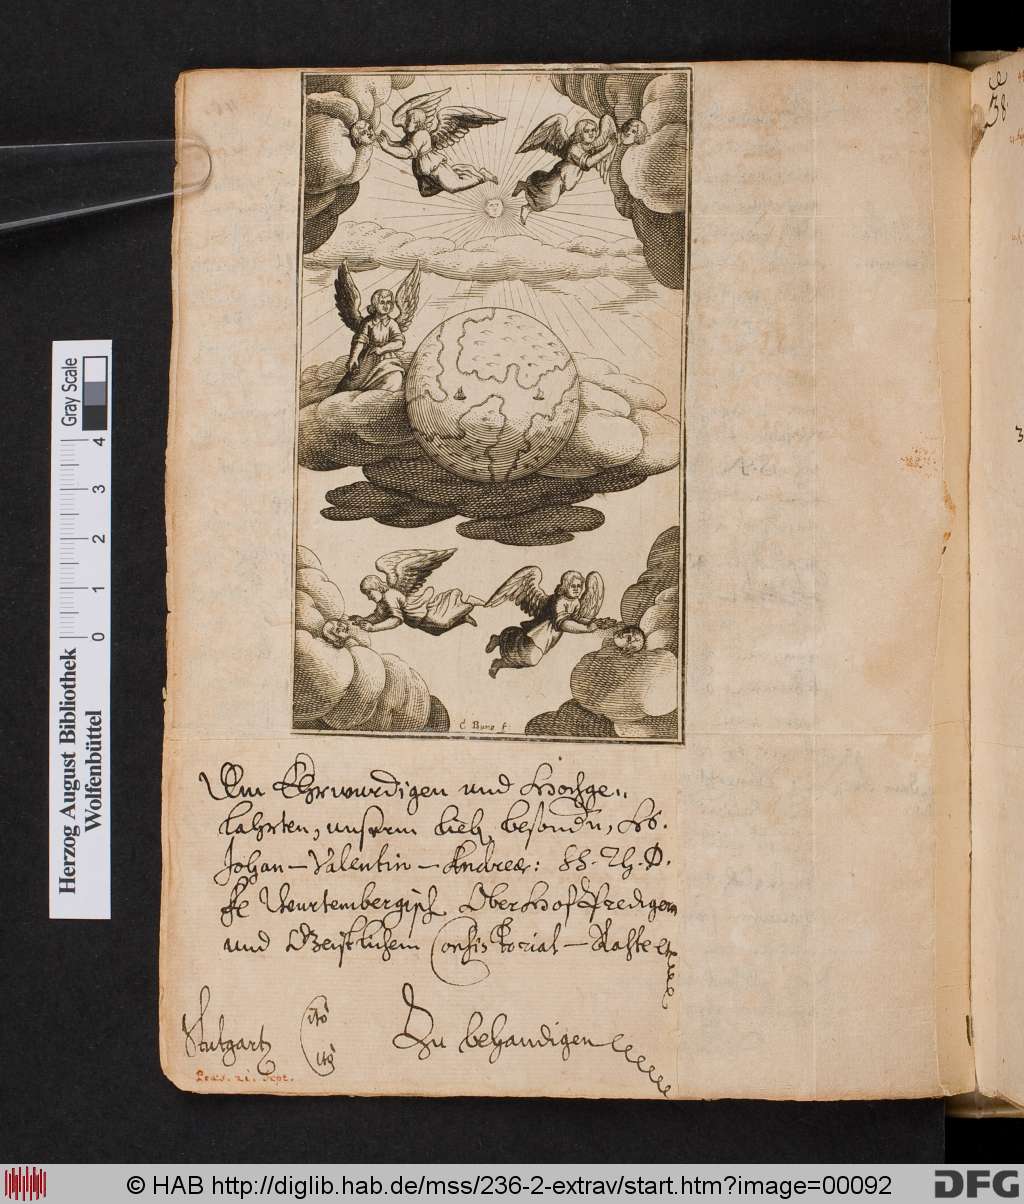 C Buno f.
Dem Ehrwurdigen und Hochge„
lahrten, unserm lieb. besondn, Hb.
Johan – Valentin – Andreæ: SS. Th. D.
Fe Wurtembergisch Ober Hof Predigern
und Geistlichem Consistorial – Rahte
Stutgart
Cito
Cito
Zu behandigen
Præs. 21. Sept.
38
Gray Scale
4
3
2
1
0
Herzog August Bibliothek
Wolfenbüttel
© HAB http://diglib.hab.de/mss/236-2-extrav/start.htm?image=00092
DFG